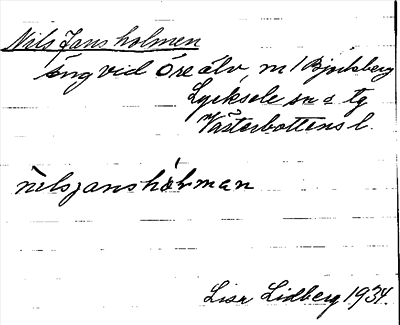 Nils Jans holmen
äng vid Öre älv, m/ Björksberg
Lycksele sn o tg
Västerbottens l.
nilsjanshòlman
Lisa Lidberg 1934.